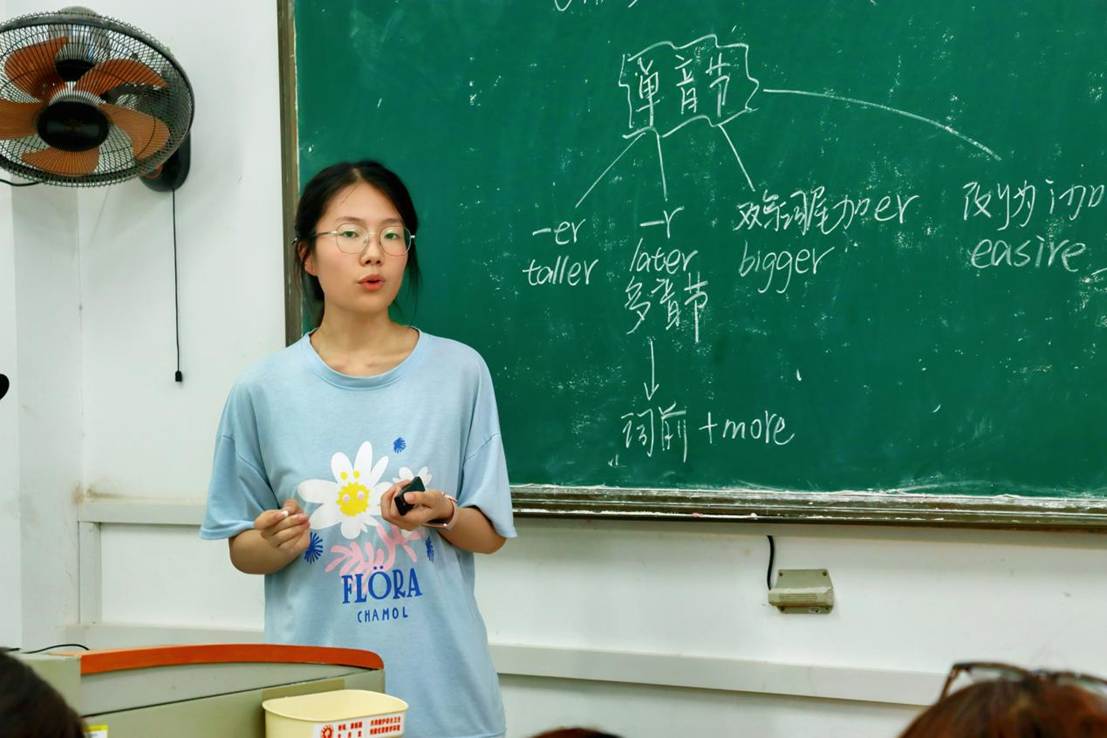 单音节
-er
taller
-r
later
双写词尾加er
bigger
改y为i加
easire
多音节
词前 +more
FLÖRA
CHAMOL